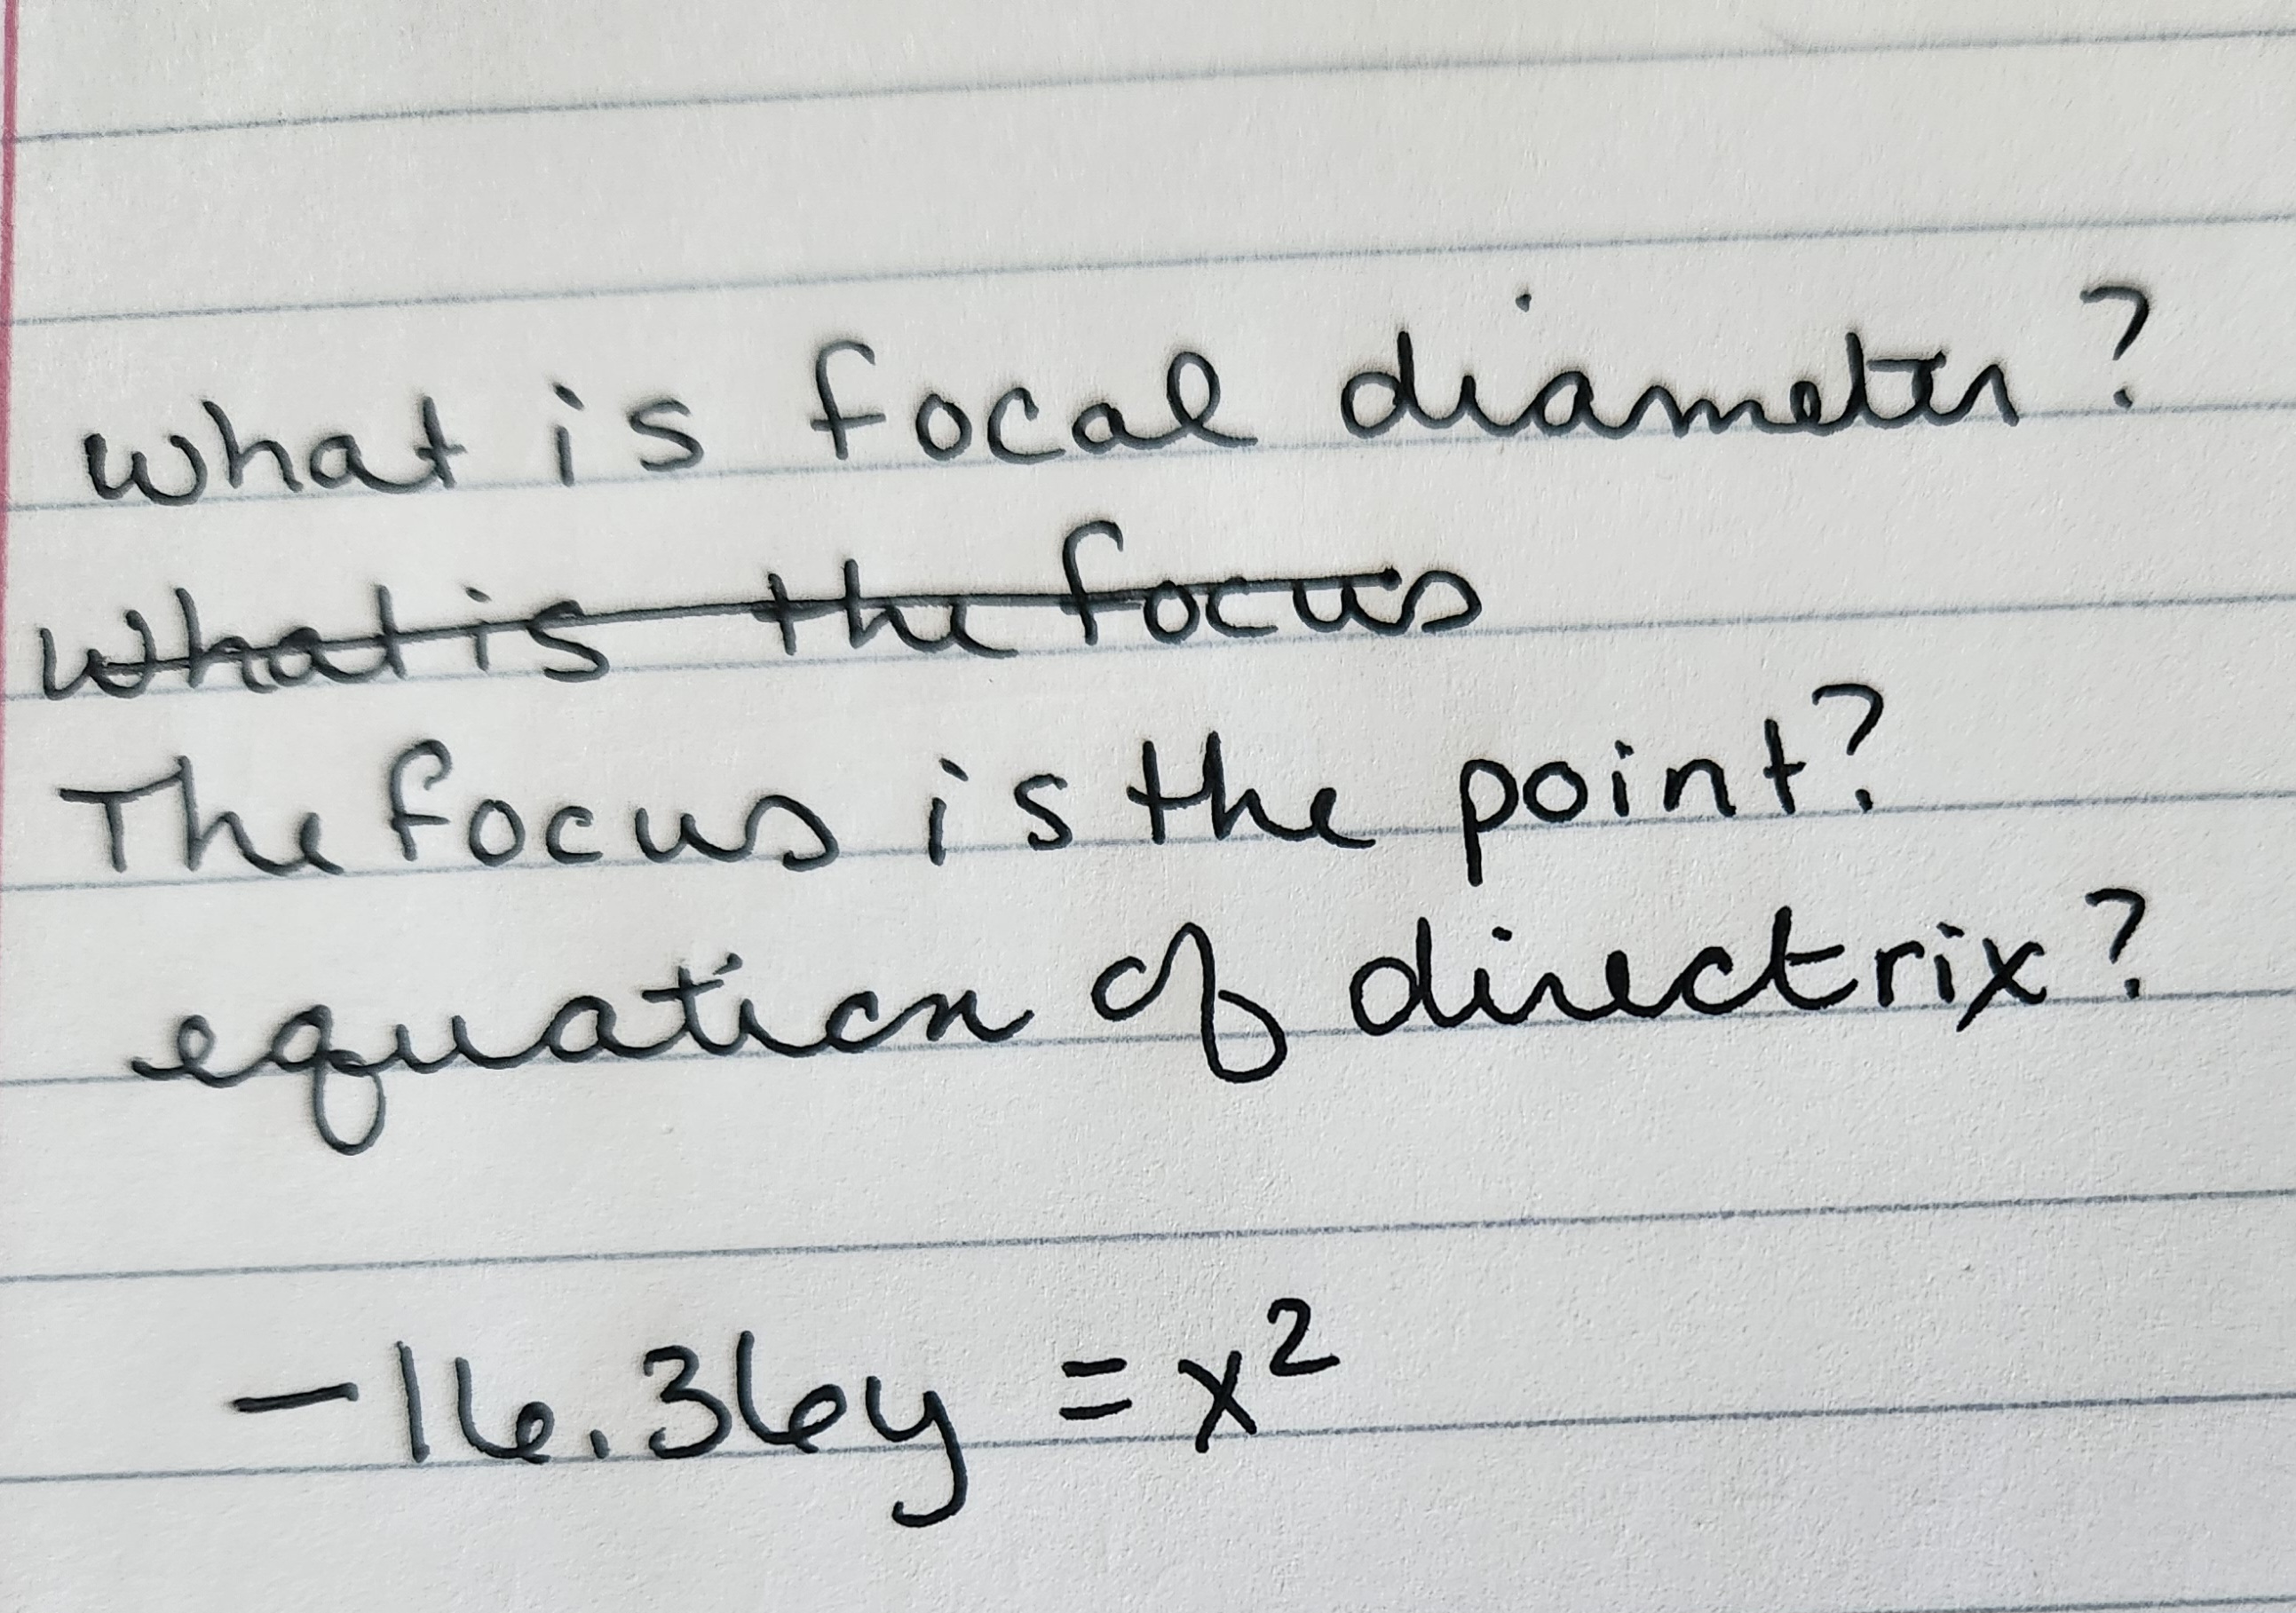 What is focal diameter?
What is the focus
The focus is the point?
equation of directrix?
-16.36y = x²